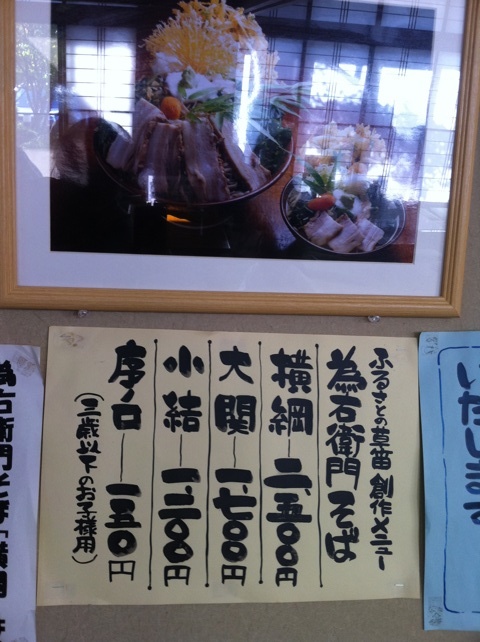 ふるさとの草笛 創作メニュー
為右衛門そば
横綱―二、五〇〇円
大関―一、七〇〇円
小結―一、二〇〇円
序ノ口―一五〇円
(三歳以下のお子様用)
いたします
為右衛門そば「横綱